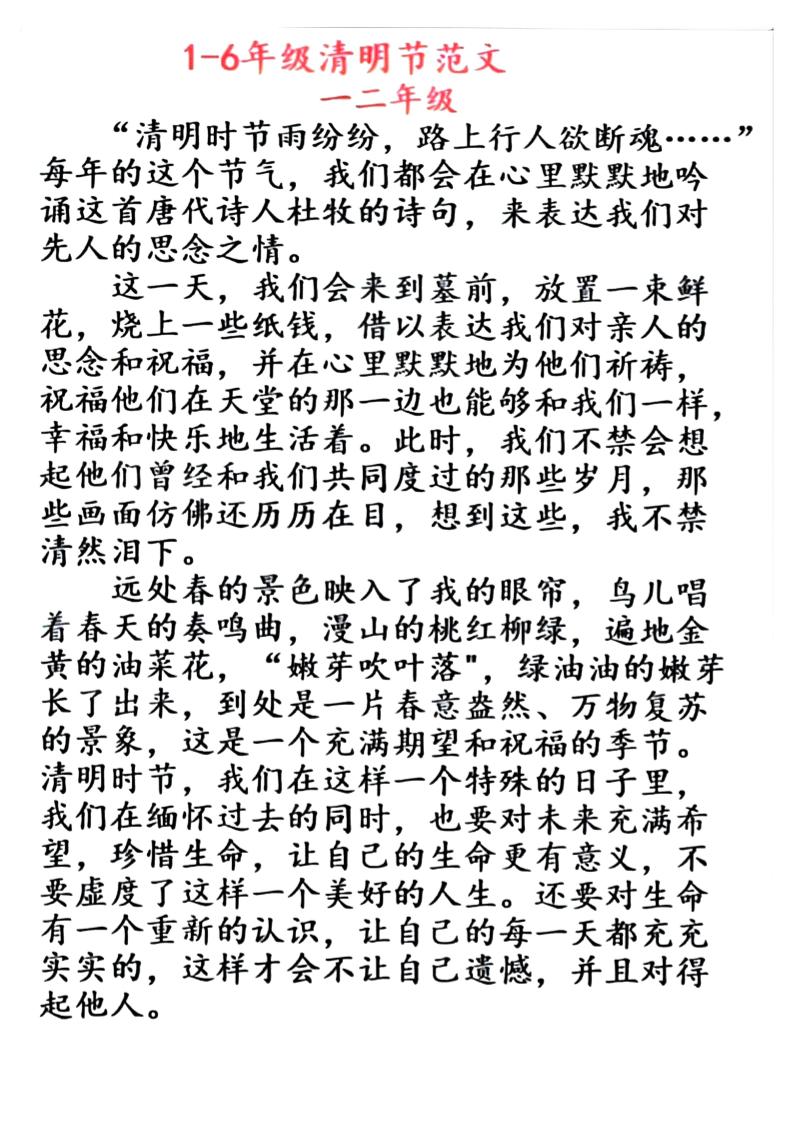 1-6年级清明节范文
一二年级
“清明时节雨纷纷，路上行人欲断魂……”
每年的这个节气，我们都会在心里默默地吟
诵这首唐代诗人杜牧的诗句，来表达我们对
先人的思念之情。
这一天，我们会来到墓前，放置一束鲜
花，烧上一些纸钱，借以表达我们对亲人的
思念和祝福，并在心里默默地为他们祈祷，
祝福他们在天堂的那一边也能够和我们一样，
幸福和快乐地生活着。此时，我们不禁会想
起他们曾经和我们共同度过的那些岁月，那
些画面仿佛还历历在目，想到这些，我不禁
清然泪下。
远处春的景色映入了我的眼帘，鸟儿唱
着春天的奏鸣曲，漫山的桃红柳绿，遍地金
黄的油菜花，“嫩芽吹叶落"，绿油油的嫩芽
长了出来，到处是一片春意盎然、万物复苏
的景象，这是一个充满期望和祝福的季节。
清明时节，我们在这样一个特殊的日子里，
我们在缅怀过去的同时，也要对未来充满希
望，珍惜生命，让自己的生命更有意义，不
要虚度了这样一个美好的人生。还要对生命
有一个重新的认识，让自己的每一天都充充
实实的，这样才会不让自己遗憾，并且对得
起他人。